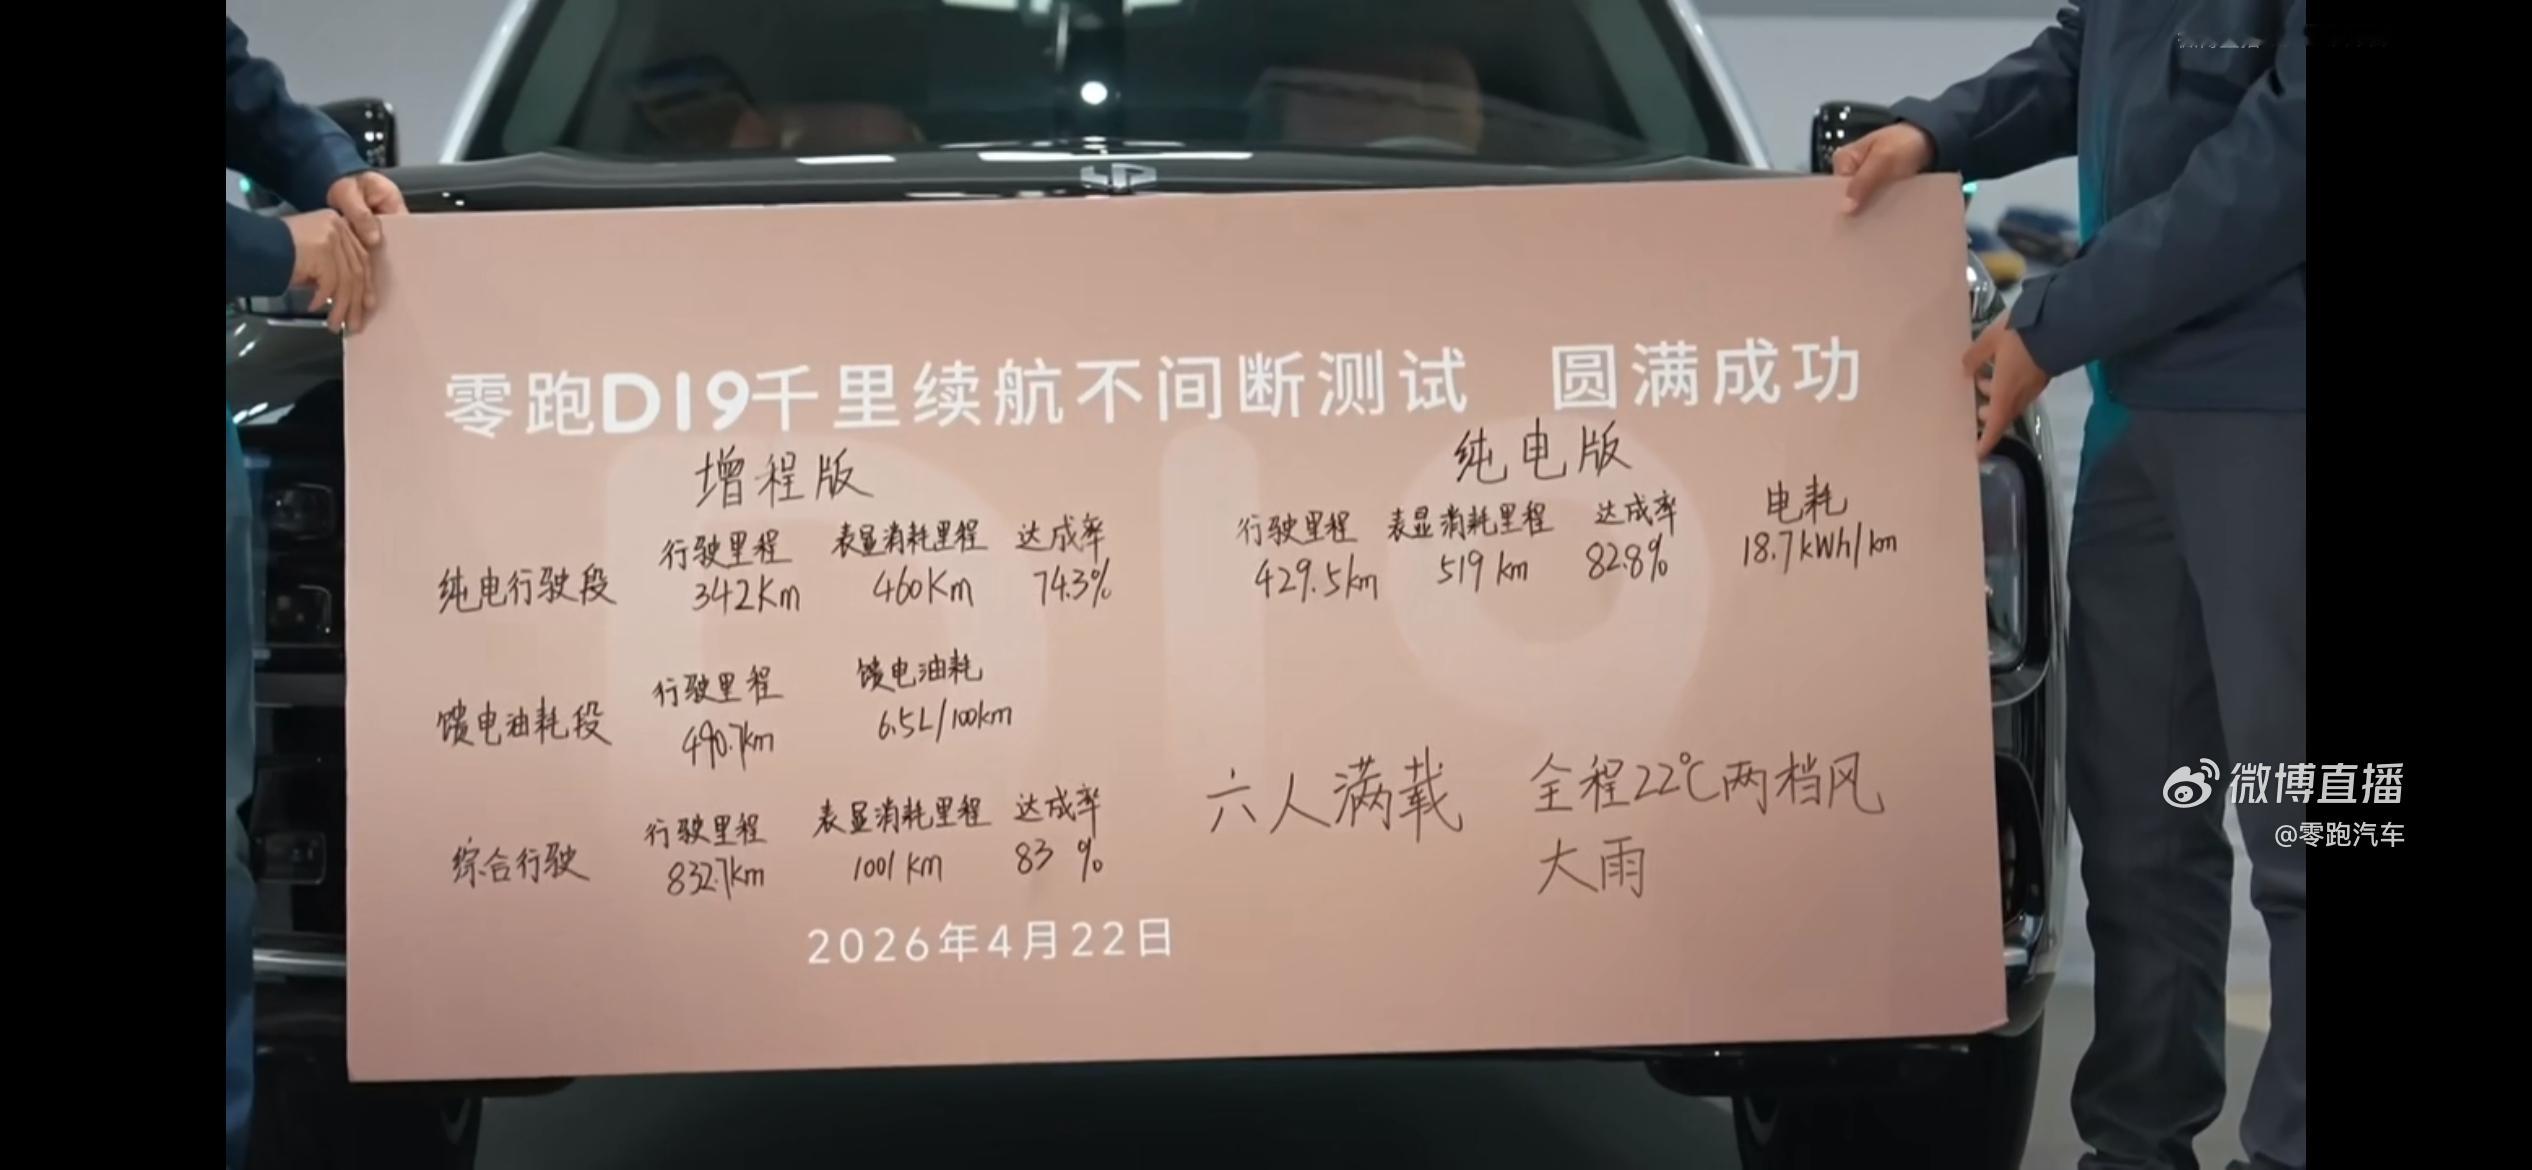 零跑D19千里续航不间断测试 圆满成功
增程版
行驶里程 表显消耗里程 达成率
纯电行驶段 342Km 460Km 74.3%
行驶里程 馈电油耗
馈电油耗段 490.7km 6.5L/100km
行驶里程 表显消耗里程 达成率
综合行驶 832.7km 1001km 83%
纯电版
行驶里程 表显消耗里程 达成率 电耗
429.5km 519km 82.8% 18.7kWh/km
六人满载 全程22℃两档风
大雨
2026年4月22日
微博直播
@零跑汽车